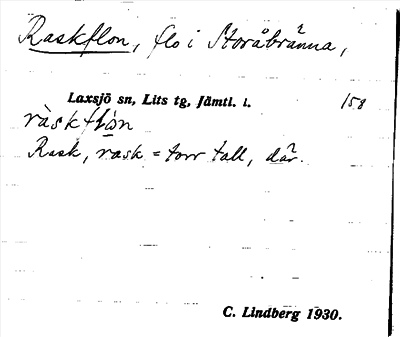 Raskflon, flo i Storåbränna,
Laxsjö sn, Lits tg, Jämtl. l. 158
ràskflón
Rask, rask = torr tall, där.
C. Lindberg 1930.